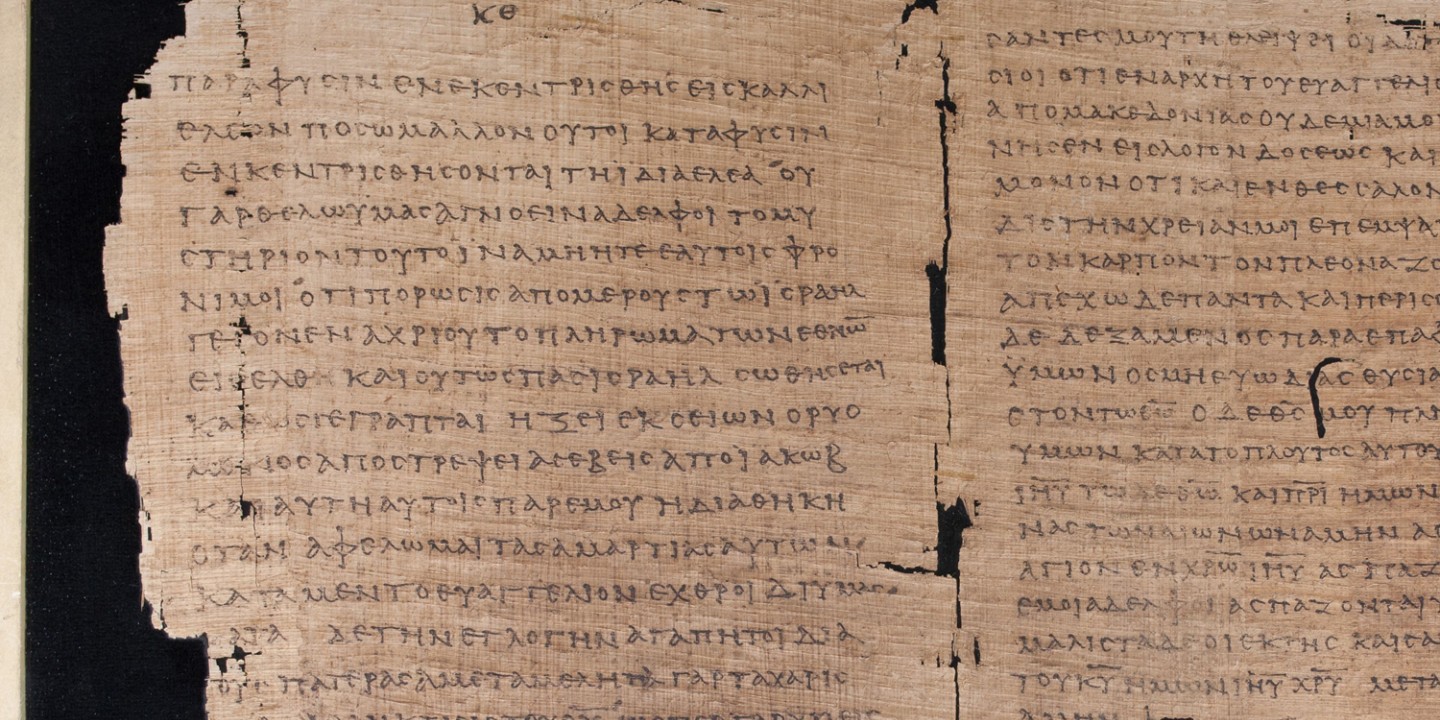 ΚΘ
ΠΑΡΑ ΦΥϹΙΝ ΕΝΕΚΕΝΤΡΙϹΘΗϹ ΕΙϹ ΚΑΛΛΙ
ΕΛΕΟΝ ΠΟϹΩ ΜΑΛΛΟΝ ΟΥΤΟΙ ΚΑΤΑ ΦΥϹΙΝ
ΕΝΚΕΝΤΡΙϹΘΗϹΟΝΤΑΙ ΤΗ ΙΔΙΑ ΕΛΕΑ ΟΥ
ΓΑΡ ΘΕΛΩ ΫΜΑϹ ΑΓΝΟΕΙΝ ΑΔΕΛΦΟΙ ΤΟ ΜΥ
ϹΤΗΡΙΟΝ ΤΟΥΤΟ ΙΝΑ ΜΗ ΗΤΕ ΕΑΥΤΟΙϹ ΦΡΟ
ΝΙΜΟΙ ΟΤΙ ΠΟΡΩϹΙϹ ΑΠΟ ΜΕΡΟΥϹ ΤΩ ΙϹΡΑΗΛ
ΓΕΓΟΝΕΝ ΑΧΡΙ ΟΥ ΤΟ ΠΛΗΡΩΜΑ ΤΩΝ ΕΘΝΩ̅
ΕΙϹΕΛΘΗ ΚΑΙ ΟΥΤΩϹ ΠΑϹ ΙϹΡΑΗΛ ϹΩΘΗϹΕΤΑΙ
ΚΑΘΩϹ ΓΕΓΡΑΠΤΑΙ ΗΞΕΙ ΕΚ ϹΕΙΩΝ Ο ΡΥΟ
ΜΕΝΟϹ ΑΠΟϹΤΡΕΨΕΙ ΑϹΕΒΕΙϹ ΑΠΟ ΙΑΚΩΒ
ΚΑΙ ΑΥΤΗ ΑΥΤΟΙϹ ΠΑΡ ΕΜΟΥ Η ΔΙΑΘΗΚΗ
ΟΤΑΝ ΑΦΕΛΩΜΑΙ ΤΑϹ ΑΜΑΡΤΙΑϹ ΑΥΤΩΝ
ΚΑΤΑ ΜΕΝ ΤΟ ΕΥΑΓΓΕΛΙΟΝ ΕΧΘΡΟΙ ΔΙ ΥΜΑϹ
ΚΑΤΑ ΔΕ ΤΗΝ ΕΓΛΟΓΗΝ ΑΓΑΠΗΤΟΙ ΔΙΑ
ΤΟΥϹ ΠΑΤΕΡΑϹ ΑΜΕΤΑΜΕΛΗΤΑ ΓΑΡ ΤΑ ΧΑΡΙϹ
ϹΑΝΤΕϹ ΜΟΥ ΤΗ ΘΛΕΙΨΕΙ
ϹΙΟΙ ΟΤΙ ΕΝ ΑΡΧΗ ΤΟΥ ΕΥΑΓΓΕΛΙΟ
ΑΠΟ ΜΑΚΕΔΟΝΙΑϹ ΟΥΔΕΜΙΑ ΜΟΙ
ΝΗϹΕΝ ΕΙϹ ΛΟΓΟΝ ΔΟϹΕΩϹ ΚΑΙ
ΜΟΝΟΝ ΟΤΙ ΚΑΙ ΕΝ ΘΕϹϹΑΛΟΝ
ΔΙϹ ΤΗΝ ΧΡΕΙΑΝ ΜΟΙ ΕΠΕΜΨΑ
ΤΟΝ ΚΑΡΠΟΝ ΤΟΝ ΠΛΕΟΝΑΖΟ
ΑΠΕΧΩ ΔΕ ΠΑΝΤΑ ΚΑΙ ΠΕΡΙϹϹ
ΔΕ ΔΕΞΑΜΕΝΟϹ ΠΑΡΑ ΕΠΑΦ
ΫΜΩΝ ΟϹΜΗ ΕΥΩΔΙΑϹ ΘΥϹΙΑ
ΕϹΤΟΝ ΤΩ Θ̅Ω̅ Ο ΔΕ Θ̅Ϲ̅ ΜΟΥ ΠΛΗ
ΥΜΩΝ ΚΑΤΑ ΤΟ ΠΛΟΥΤΟϹ ΑΥΤΟΥ
Ι̅Η̅Υ̅ ΤΩ ΔΕ Θ̅Ω̅ ΚΑΙ Π̅Ρ̅Ι̅ ΗΜΩΝ
ΝΑϹ ΤΩΝ ΑΙΩΝΩΝ ΑΜΗΝ ΑϹ
ΑΓΙΟΝ ΕΝ Χ̅Ρ̅Ω̅ Ι̅Η̅Υ̅ ΑϹΠΑΖ
ΕΜΟΙ ΑΔΕΛΦΟΙ ΑϹΠΑΖΟΝΤΑΙ Υ
ΜΑΛΙϹΤΑ ΔΕ ΟΙ ΕΚ ΤΗϹ ΚΑΙϹΑ
ΤΟΥ Κ̅Υ̅ ΗΜΩΝ Ι̅Η̅Υ̅ Χ̅Ρ̅Υ̅ ΜΕΤΑ